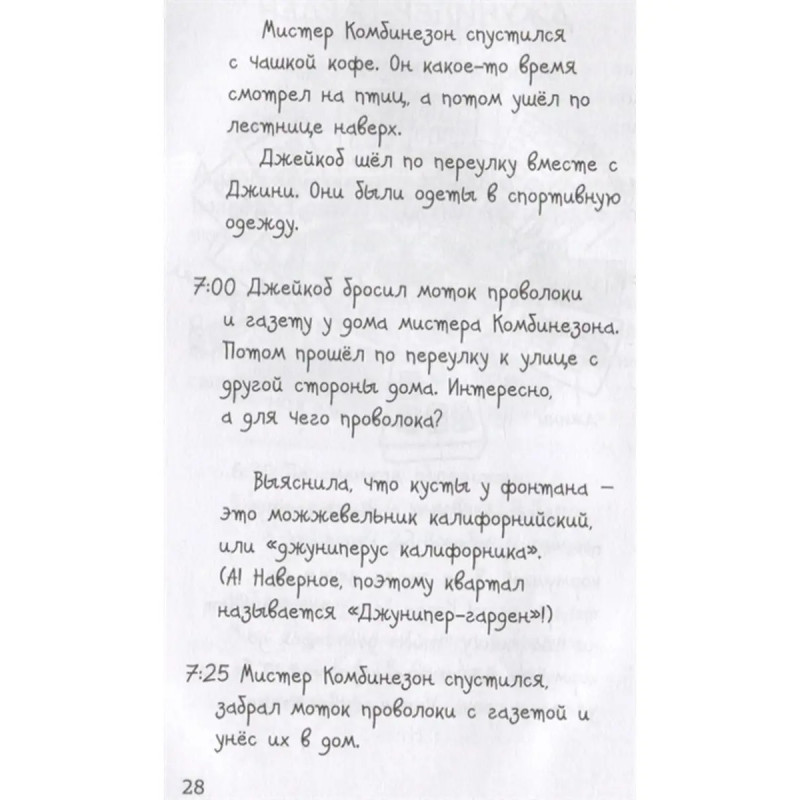 Мистер Комбинезон спустился
с чашкой кофе. Он какое-то время
смотрел на птиц, а потом ушёл по
лестнице наверх.
Джейкоб шёл по переулку вместе с
Джини. Они были одеты в спортивную
одежду.
7:00 Джейкоб бросил моток проволоки
и газету у дома мистера Комбинезона.
Потом прошёл по переулку к улице с
другой стороны дома. Интересно,
а для чего проволока?
Выяснила, что кусты у фонтана –
это можжевельник калифорнийский,
или «джуниперус калифорника».
(А! Наверное, поэтому квартал
называется «Джунипер-гарден»!)
7:25 Мистер Комбинезон спустился,
забрал моток проволоки с газетой и
унёс их в дом.
28